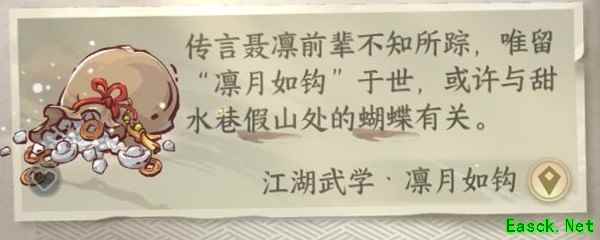 传言聂凛前辈不知所踪，唯留
“凛月如钩”于世，或许与甜
水巷假山处的蝴蝶有关。
江湖武学·凛月如钩
Easck.Net